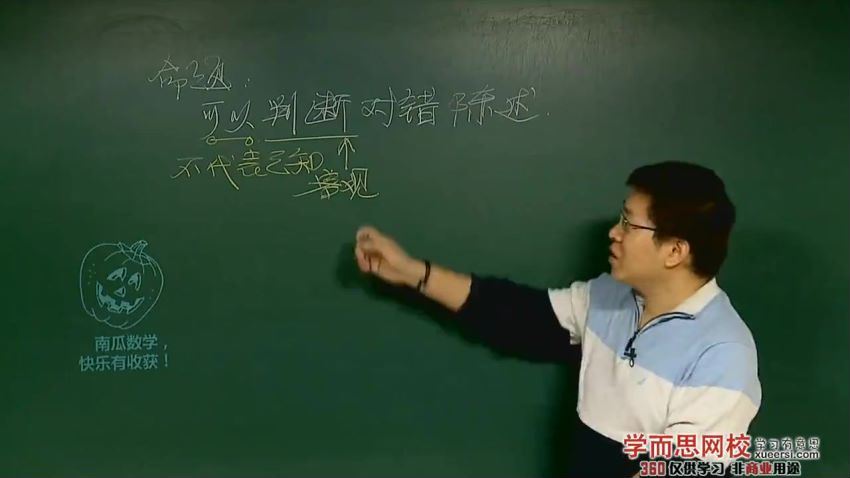 命题：
可以判断对错陈述.
不代表已知
客观
南瓜数学，
快乐有收获！
学而思网校 学习有意思
xueersi.com
360 仅供学习 非商业用途